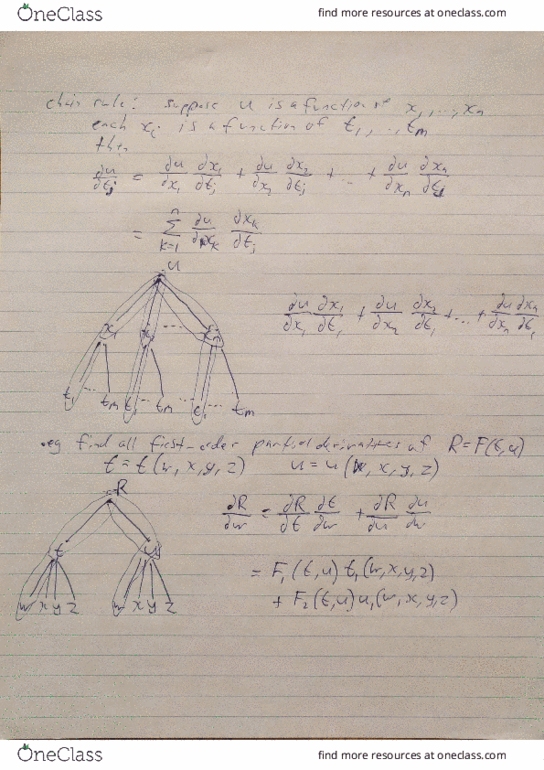 OneClass
find more resources at oneclass.com
chain rule: suppose u is a function of x₁, ..., xₙ
each xᵢ is a function of t₁, ..., tₘ
then
∂u/∂tⱼ = ∂u/∂x₁ ∂x₁/∂tⱼ + ∂u/∂x₂ ∂x₂/∂tⱼ + ... + ∂u/∂xₙ ∂xₙ/∂tⱼ
= Σₖ₌₁ⁿ ∂u/∂xₖ ∂xₖ/∂tⱼ
u
x₁ x₂ ... xₙ
∂u/∂x₁ ∂x₁/∂t₁ + ∂u/∂x₂ ∂x₂/∂t₁ + ... + ∂u/∂xₙ ∂xₙ/∂t₁
t₁ ... tₘ t₁ ... tₘ t₁ tₘ
eg find all first-order partial derivatives of R = F(t,u)
t = t(w, x, y, z) u = u(w, x, y, z)
R
∂R/∂w = ∂R/∂t ∂t/∂w + ∂R/∂u ∂u/∂w
t u
= F₁(t,u) t₁(w,x,y,z)
w x y z w x y z
+ F₂(t,u) u₁(w,x,y,z)
OneClass
find more resources at oneclass.com